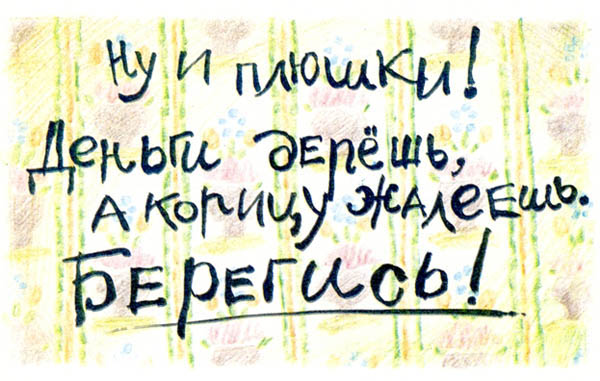 Ну и плюшки!
Деньги дерёшь,
а корицу жалеешь.
Берегись!